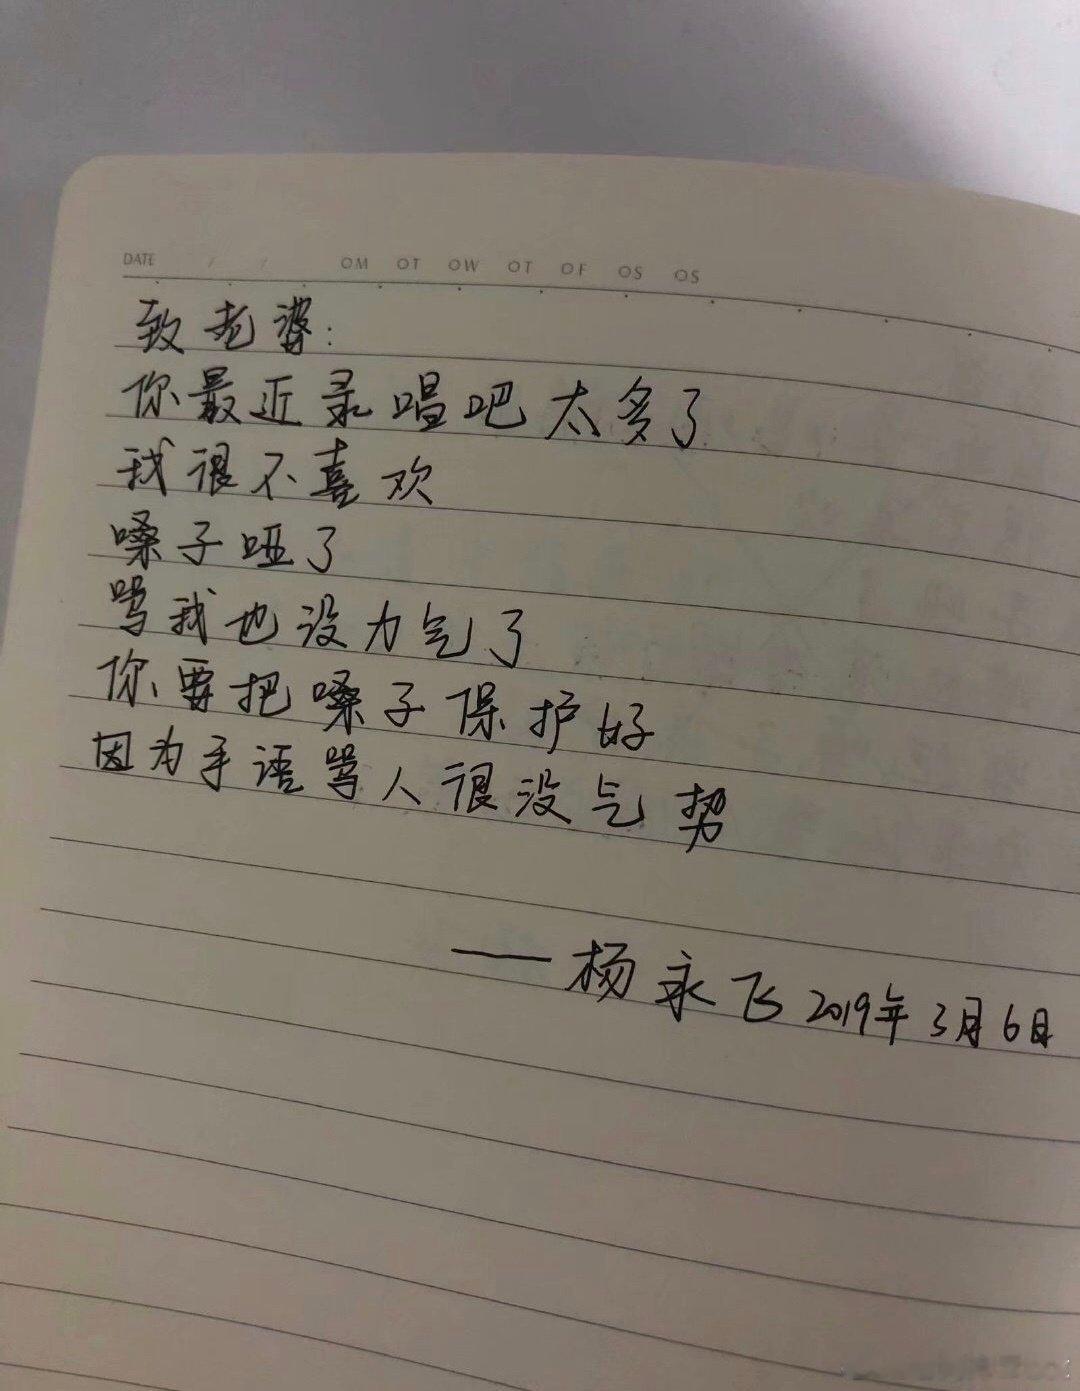 DATE / / OM OT OW OT OF OS OS
致老婆:
你最近录唱吧太多了
我很不喜欢
嗓子哑了
骂我也没力气了
你要把嗓子保护好
因为手语骂人很没气势
——杨永飞2019年3月6日